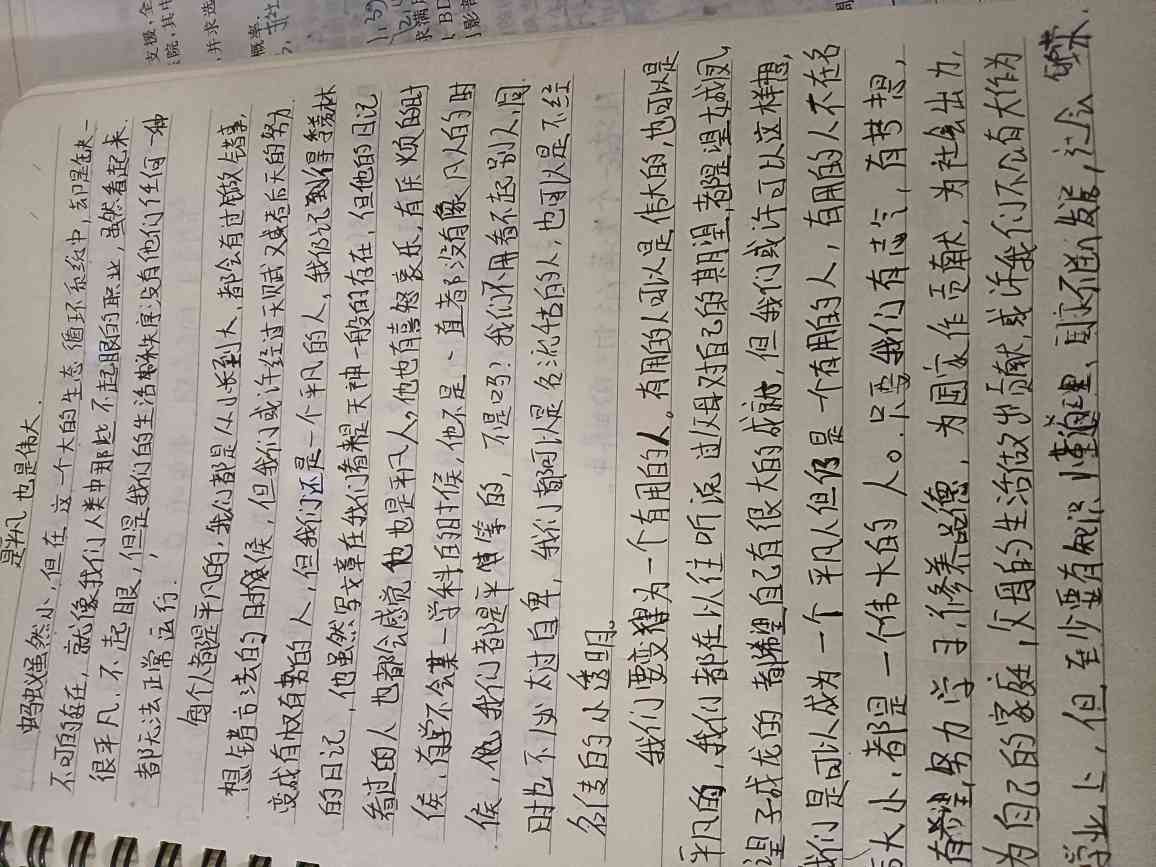 是平凡也是伟大.
蚂蚁虽然小,但在这个大的生态循环系统中,却是缺一
不可的存在,就像我们人类中那些不起眼的职业,虽然看起来
很平凡,不起眼,但是我们的生活秩序没有他们任何一种
都无法正常运行.
每个人都是平凡的,我们都是从小长到大,都会有过做错事,
想错方法的时候,但我们或许经过天赋又或者后天的努力
变成有权有势的人,但我们还是一个平凡的人,我仍记得季羡林
的日记,他虽然写文章在我们看来是天神一般的存在,但他的日记
看过的人也都会感觉他也是平凡人,他也有喜怒哀乐,有厌烦的时
候,有学不会某一学科的时候,他不是一直都没有像凡人的时
候,他我们都是平等的,不是吗?我们不用看不起别人,同
时也不必太过自卑,我们都可以是名流估的人,也可以是不经
名传的小透明。
我们要变得为一个有用的人。有用的人可以是伟大的,也可以是
平凡的,我们都在以往听说过父母对自己的期望,都是望女成凤,
望子成龙的都希望自己有很大的成就,但我们或许可以这样想,
我们是可以成为一个平凡人但仍是一个有用的人,有用的人不在名
大小,都是一个伟大的人。只要我们有志气,有梦想,
有希望,努力学习,修养品德,为国家作贡献,为社会出力,
为自己的家庭,父母的生活做出贡献,或许我们不会有大作为
学业上,但至少要有知识懂道理,国家不断发展,社会